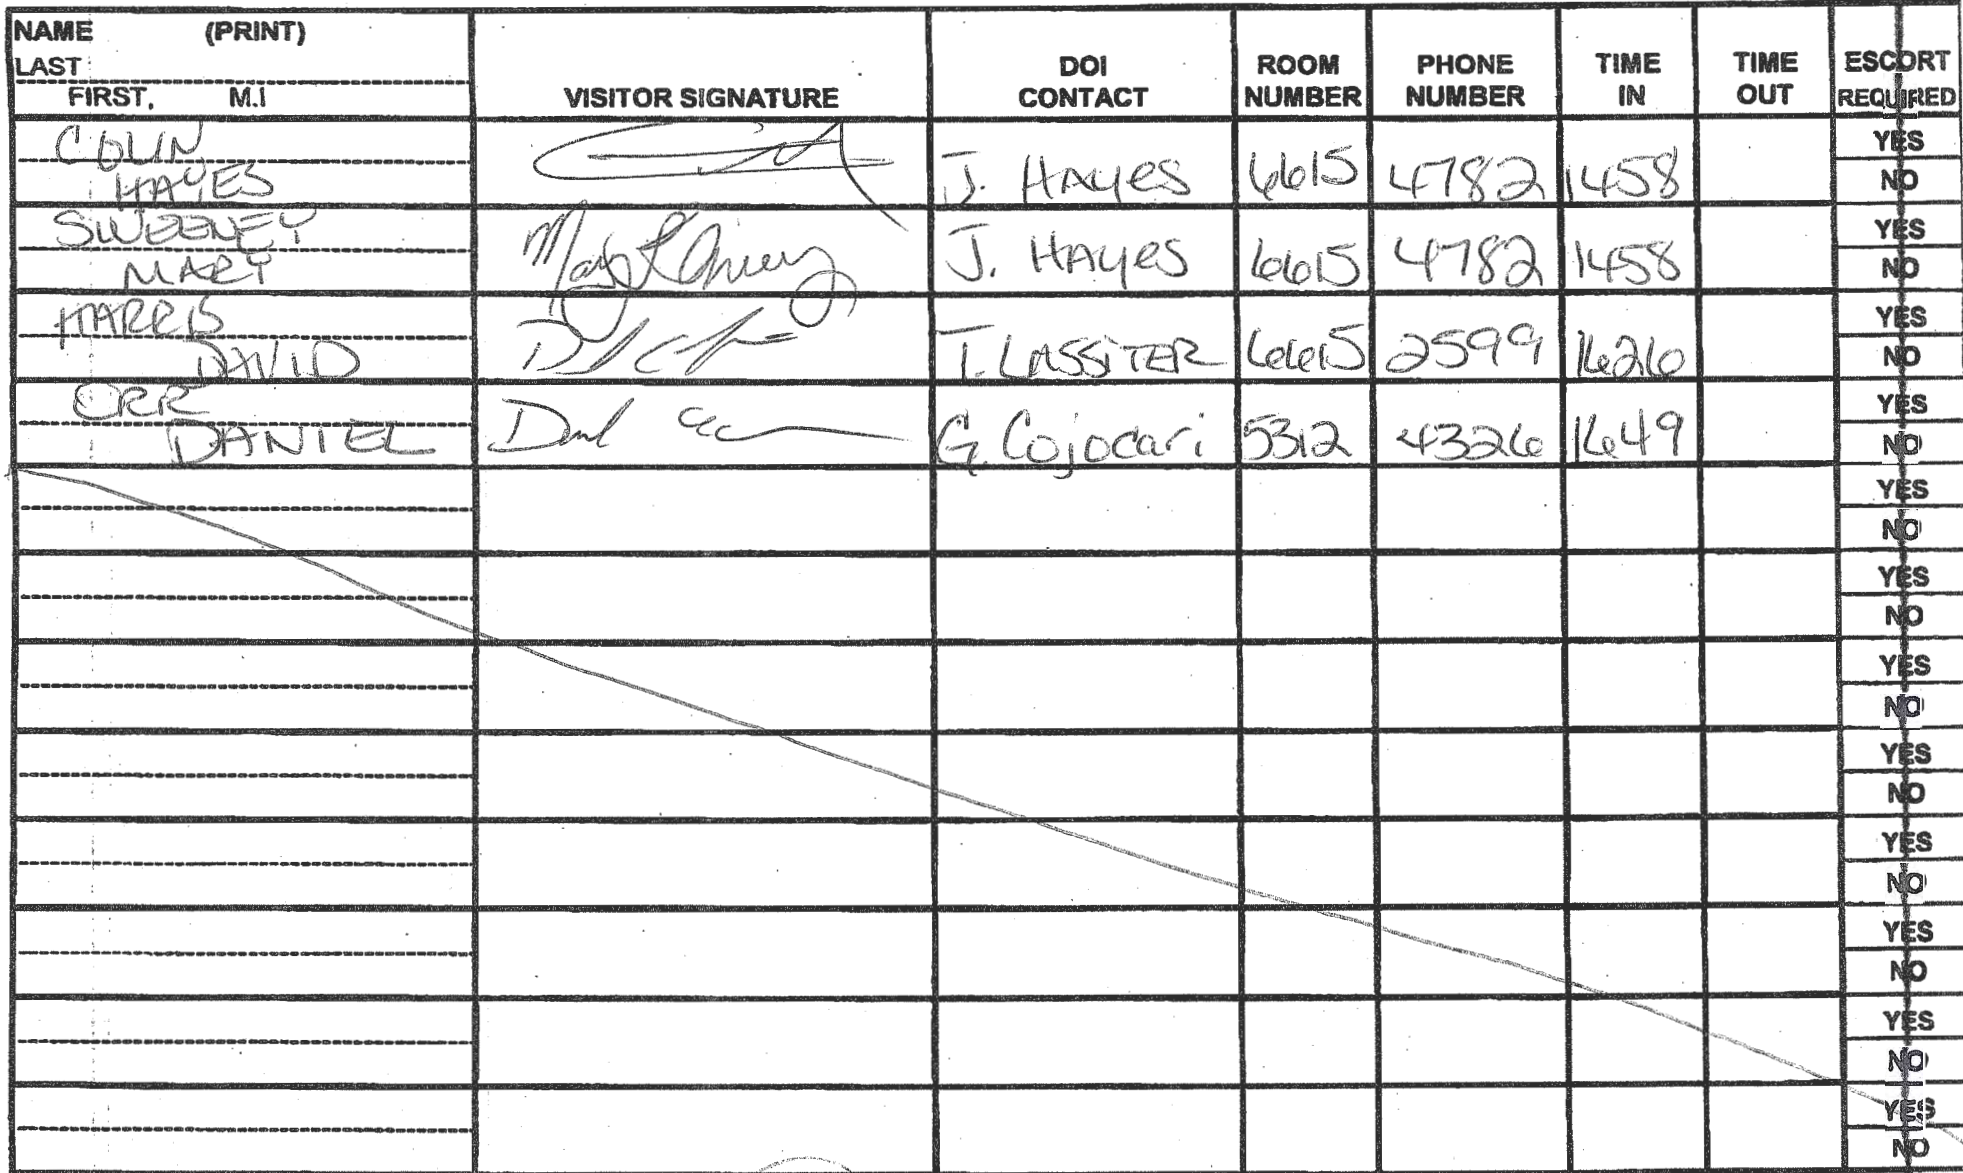 NAME (PRINT)
LAST
FIRST, M.I
VISITOR SIGNATURE
DOI
CONTACT
ROOM
NUMBER
PHONE
NUMBER
TIME
IN
TIME
OUT
ESCORT
REQUIRED
COLIN
HAYES
J. HAYES 6615 4782 1458
YES
NO
SWEENEY
MARY
J. HAYES 6615 4782 1458
YES
NO
HARRIS
DAVID
T. LASSITER 6615 2599 1626
YES
NO
ORR
DANIEL
G. Cojocari 5312 4326 1649
YES
NO
YES
NO
YES
NO
YES
NO
YES
NO
YES
NO
YES
NO
YES
NO
YES
NO